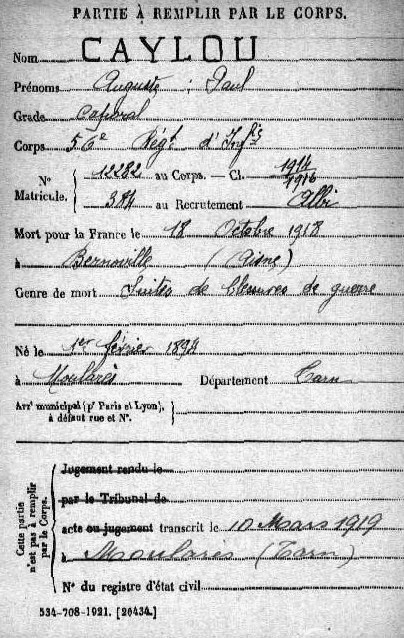 PARTIE À REMPLIR PAR LE CORPS.
Nom CAYLOU
Prénoms Auguste ; Paul
Grade Caporal
Corps 56e Régt d'Infie
Nº Matricule. { 12282 au Corps. — Cl. 1914/1916
384 au Recrutement Albi
Mort pour la France le 18 Octobre 1918
à Bernoville (Aisne)
Genre de mort Suites de blessures de guerre
Né le 1er février 1894
à Moularès Département Tarn
Arrt municipal (pr Paris et Lyon), à défaut rue et Nº. }
Cette partie n'est pas à remplir par le Corps. {
Jugement rendu le
par le Tribunal de
acte ou jugement transcrit le 10 Mars 1919
à Moularès (Tarn)
Nº du registre d'état civil
534-708-1921. [26434.]